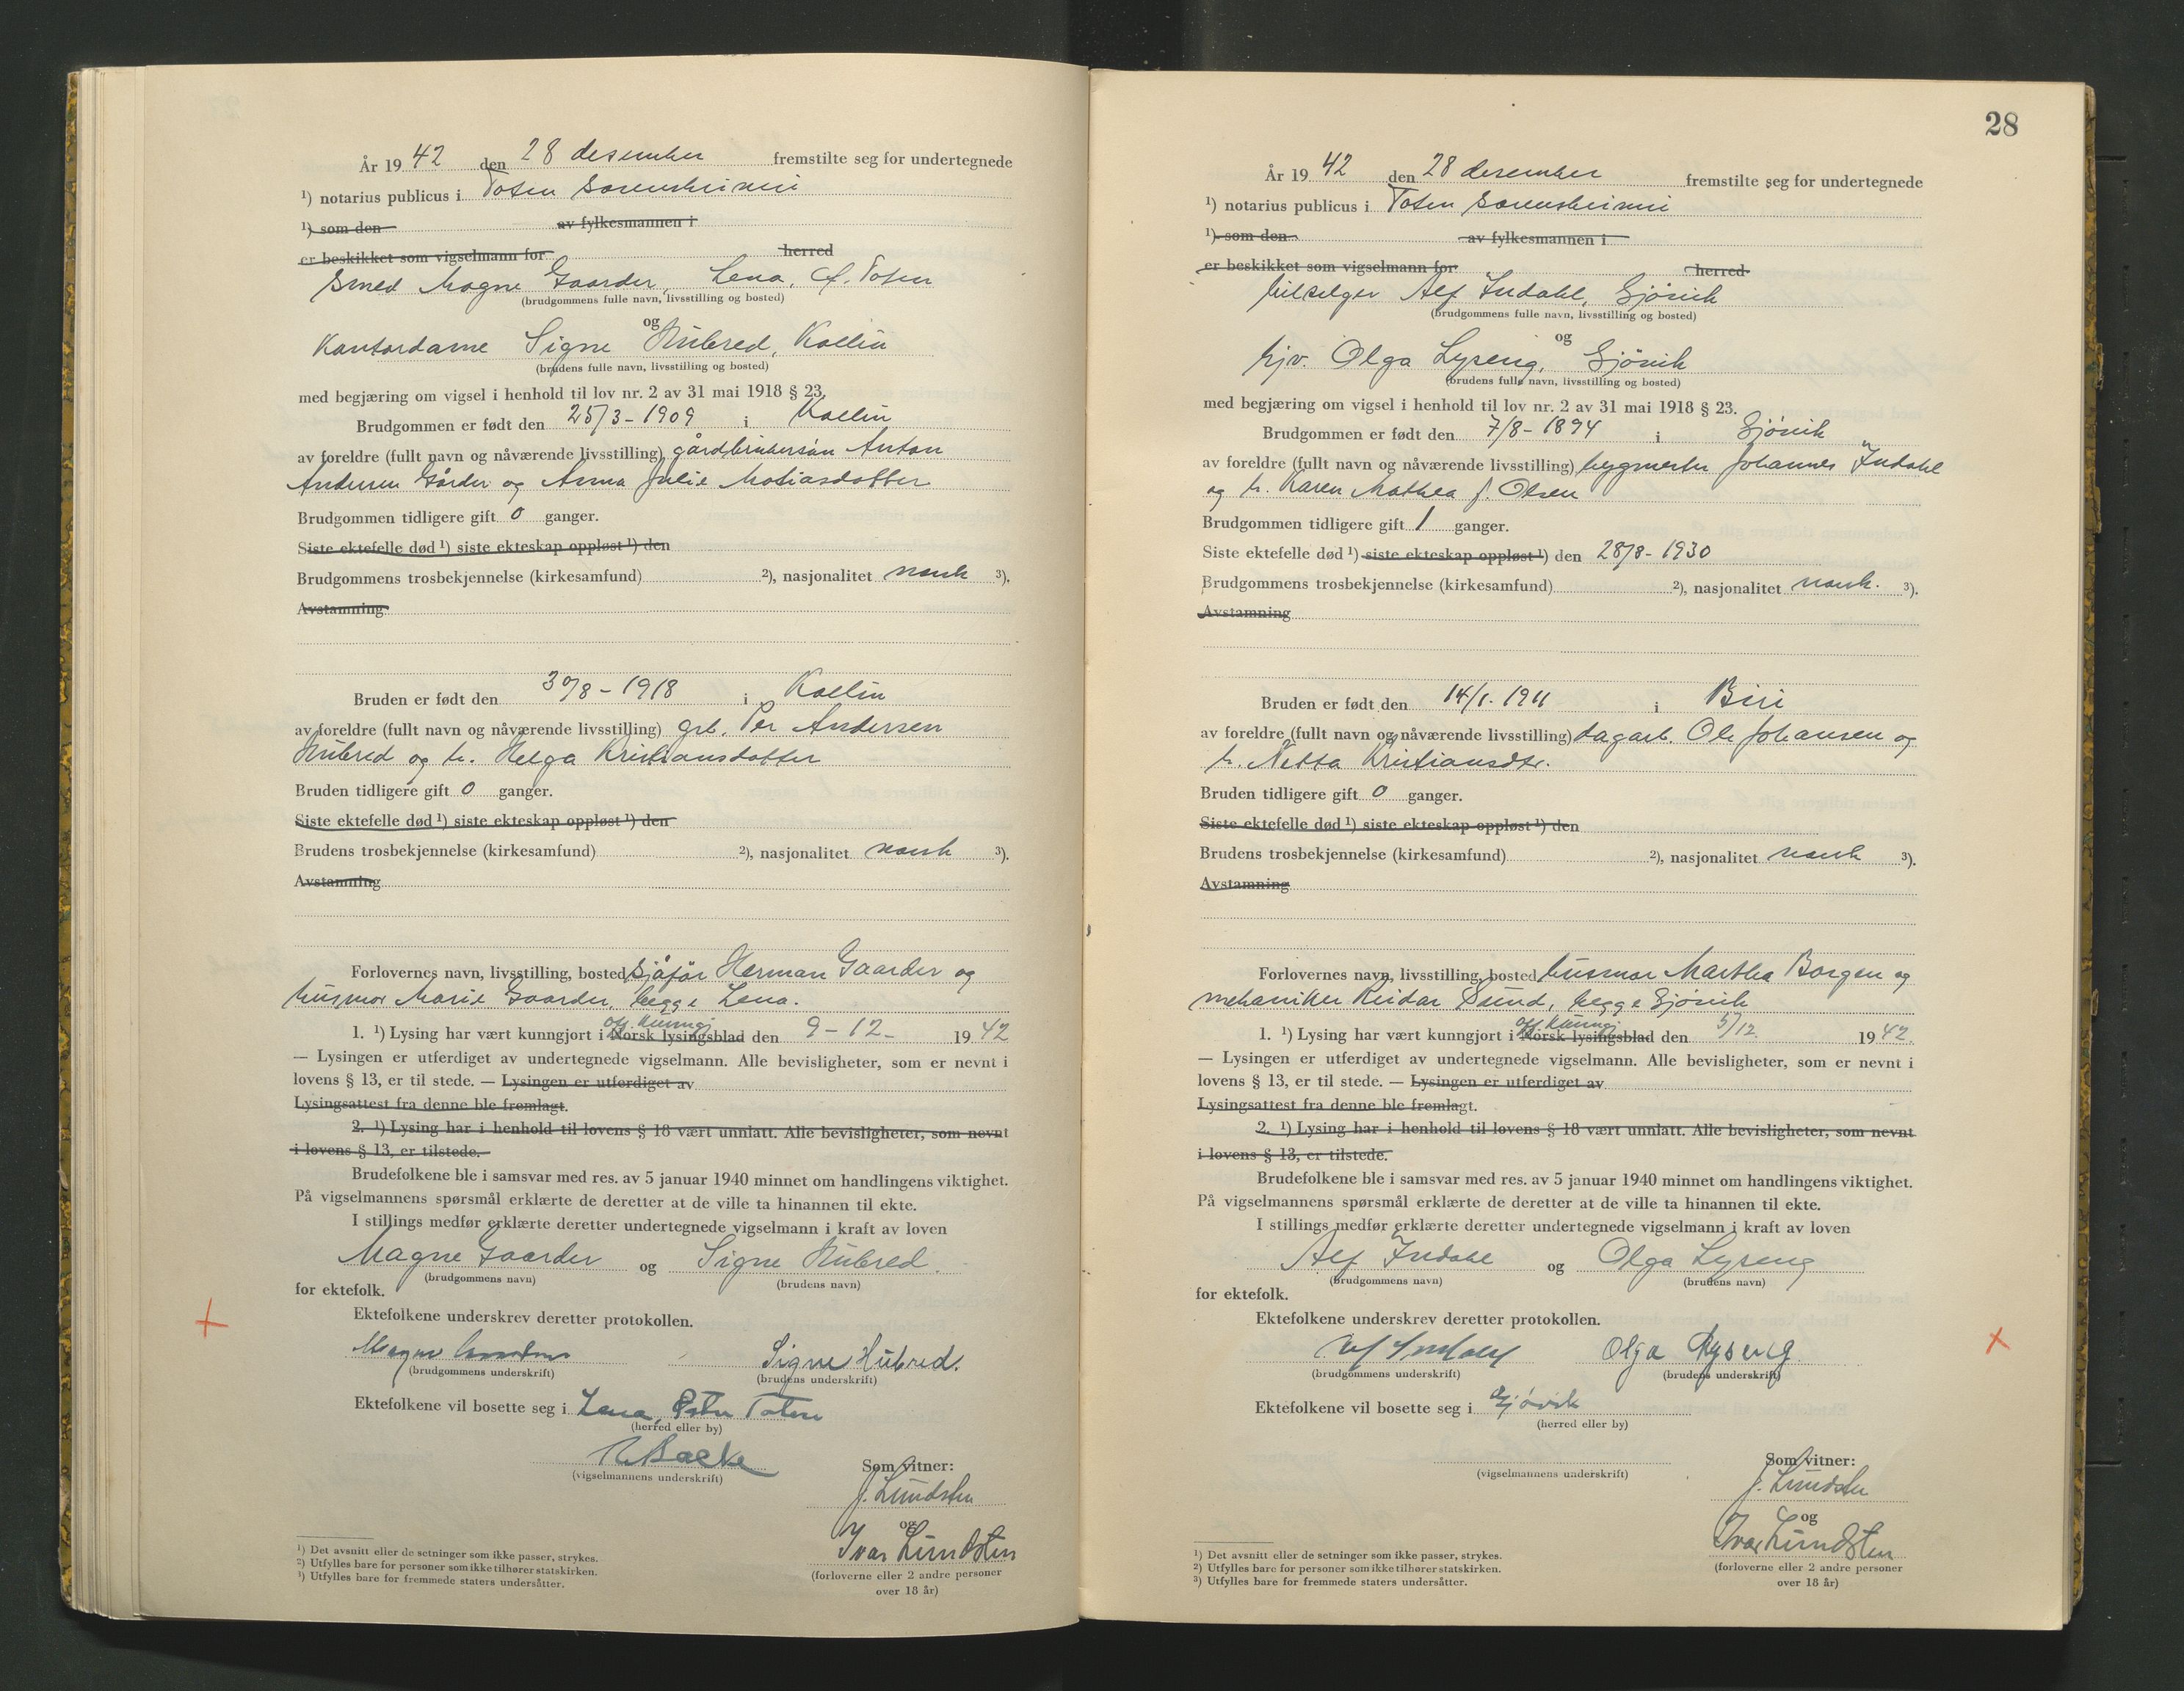 År 19 42 den 28 desember fremstilte seg for undertegnede
¹) notarius publicus i Toten sorenskriveri
¹) som den av fylkesmannen i
er beskikket som vigselmann for herred
Smed Magne Gaarder, Lena, Ø. Toten
(brudgommens fulle navn, livsstilling og bosted)
og
Kontordame Signe Hubred, Kolbu
(brudens fulle navn, livsstilling og bosted)
med begjæring om vigsel i henhold til lov nr. 2 av 31 mai 1918 § 23.
Brudgommen er født den 25/3 - 1909 i Kolbu
av foreldre (fullt navn og nåværende livsstilling) gårdbrukersøn Anton
Andersen Gårder og Anna Julie Matiasdatter
Brudgommen tidligere gift 0 ganger.
Siste ektefelle død ¹) siste ekteskap oppløst ¹) den
Brudgommens trosbekjennelse (kirkesamfund) ²), nasjonalitet norsk ³).
Avstamning
Bruden er født den 30/8 - 1918 i Kolbu
av foreldre (fullt navn og nåværende livsstilling) grb. Per Andersen
Hubred og h. Helga Kristiansdatter
Bruden tidligere gift 0 ganger.
Siste ektefelle død ¹) siste ekteskap oppløst ¹) den
Brudens trosbekjennelse (kirkesamfund) ²), nasjonalitet norsk ³).
Avstamning
Forlovernes navn, livsstilling, bosted sjåfør Herman Gaarder og
husmor Marie Gaarder, begge Lena.
off. kunngj
1. ¹) Lysing har vært kunngjort i Norsk lysingsblad den 9 - 12 - 19 42
— Lysingen er utferdiget av undertegnede vigselmann. Alle bevisligheter, som er nevnt i
lovens § 13, er til stede. — Lysingen er utferdiget av
Lysingsattest fra denne ble fremlagt.
2. ¹) Lysing har i henhold til lovens § 18 vært unnlatt. Alle bevisligheter, som nevnt
i lovens § 13, er tilstede.
Brudefolkene ble i samsvar med res. av 5 januar 1940 minnet om handlingens viktighet.
På vigselmannens spørsmål erklærte de deretter at de ville ta hinannen til ekte.
I stillings medfør erklærte deretter undertegnede vigselmann i kraft av loven
Magne Gaarder og Signe Hubred.
(brudgommens navn) (brudens navn)
for ektefolk.
Ektefolkene underskrev deretter protokollen.
Magne Gaarder Signe Hubred.
(brudgommens underskrift) (brudens underskrift)
Ektefolkene vil bosette seg i Lena, Østre Toten
(herred eller by)
Bakke
(vigselmannens underskrift)
Som vitner:
J. Lundsten
og
Ivar Lundsten
(forloverne eller 2 andre personer
over 18 år)
¹) Det avsnitt eller de setninger som ikke passer, strykes.
²) Utfylles bare for personer som ikke tilhører statskirken.
³) Utfylles bare for fremmede staters undersåtter.
28
År 19 42 den 28 desember fremstilte seg for undertegnede
¹) notarius publicus i Toten sorenskriveri
¹) som den av fylkesmannen i
er beskikket som vigselmann for herred
bilselger Alf Indahl, Gjövik
(brudgommens fulle navn, livsstilling og bosted)
og
hjv. Olga Lyseng, Gjövik
(brudens fulle navn, livsstilling og bosted)
med begjæring om vigsel i henhold til lov nr. 2 av 31 mai 1918 § 23.
Brudgommen er født den 7/8 - 1894 i Gjövik
av foreldre (fullt navn og nåværende livsstilling) bygmester Johannes Indahl
og h. Karen Mathea f. Olsen
Brudgommen tidligere gift 1 ganger.
Siste ektefelle død ¹) siste ekteskap oppløst ¹) den 28/8 - 1930
Brudgommens trosbekjennelse (kirkesamfund) ²), nasjonalitet norsk. ³).
Avstamning
Bruden er født den 14/1. 1911 i Biri
av foreldre (fullt navn og nåværende livsstilling) dagarb. Ole Johansen og
h. Netta Kristiansdtr.
Bruden tidligere gift 0 ganger.
Siste ektefelle død ¹) siste ekteskap oppløst ¹) den
Brudens trosbekjennelse (kirkesamfund) ²), nasjonalitet norsk ³).
Avstamning
Forlovernes navn, livsstilling, bosted husmor Martha Borgen og
mekaniker Reidar Sund, begge Gjövik
off. kunngj
1. ¹) Lysing har vært kunngjort i Norsk lysingsblad den 5/12. 19 42.
— Lysingen er utferdiget av undertegnede vigselmann. Alle bevisligheter, som er nevnt i
lovens § 13, er til stede. — Lysingen er utferdiget av
Lysingsattest fra denne ble fremlagt.
2. ¹) Lysing har i henhold til lovens § 18 vært unnlatt. Alle bevisligheter, som nevnt
i lovens § 13, er tilstede.
Brudefolkene ble i samsvar med res. av 5 januar 1940 minnet om handlingens viktighet.
På vigselmannens spørsmål erklærte de deretter at de ville ta hinannen til ekte.
I stillings medfør erklærte deretter undertegnede vigselmann i kraft av loven
Alf Indahl og Olga Lyseng
(brudgommens navn) (brudens navn)
for ektefolk.
Ektefolkene underskrev deretter protokollen.
Alf Indahl Olga Lyseng.
(brudgommens underskrift) (brudens underskrift)
Ektefolkene vil bosette seg i Gjøvik
(herred eller by)
(vigselmannens underskrift)
Som vitner:
J. Lundsten
og
Ivar Lundsten
(forloverne eller 2 andre personer
over 18 år)
¹) Det avsnitt eller de setninger som ikke passer, strykes.
²) Utfylles bare for personer som ikke tilhører statskirken.
³) Utfylles bare for fremmede staters undersåtter.